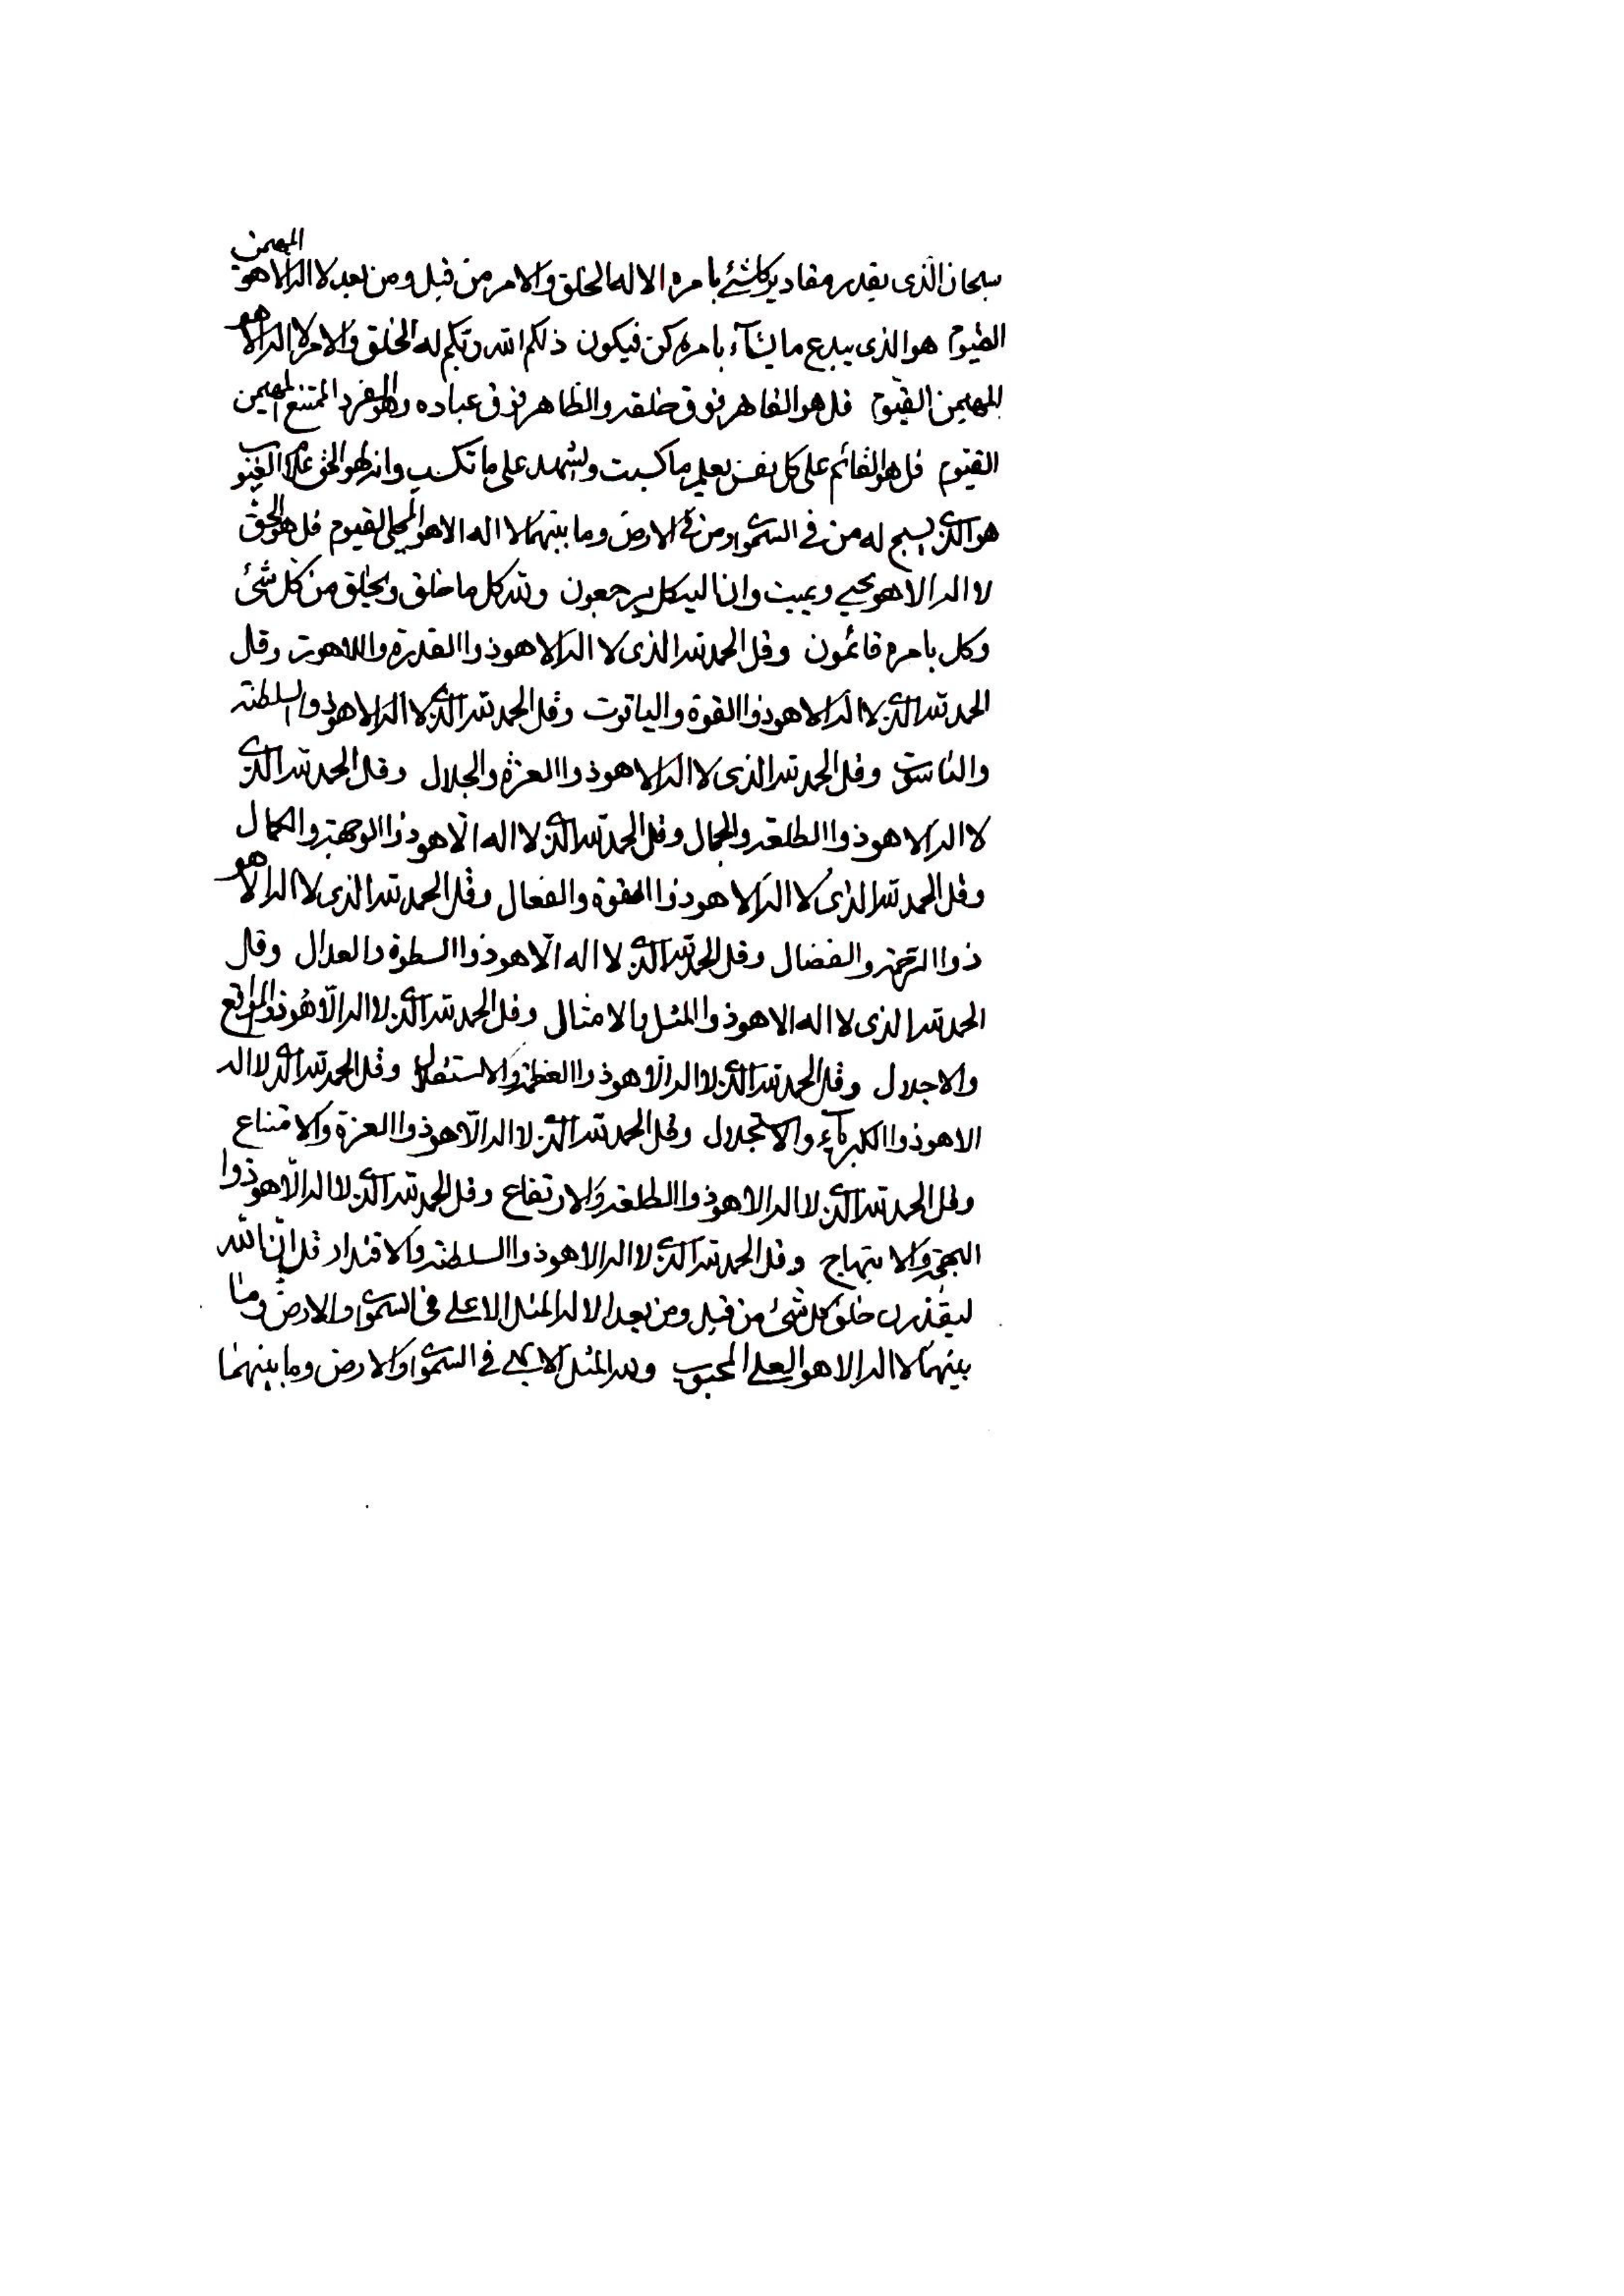 سبحان الذى يقدر مقادير كلشئ بامره الا له الخلق والامر من قبل ومن بعد لا اله الا هو المهيمن
القيوم هو الذى يبدع ما يشآء بامره كن فيكون ذلكم الله ربكم له الخلق والامر لا اله الا هو
المهيمن القيوم قل هو القاهر فوق خلقه والظاهر فوق عباده وهو المفرد الممتنع المهيمن
القيوم قل هو القائم على كل نفس يعلم ما كسبت ويشهد على ما تكسب وانه لهو الحق علام الغيوب
هو الذى يسبح له من فى السموات ومن فى الارض وما بينهما لا اله الا هو القيوم قل هو الحق
لا اله الا هو يحيى ويميت وانا اليه كل يرجعون ولله كل ما خلق ويخلق من كل شئ
وكل بامره قائمون وقل الحمد لله الذى لا اله الا هو ذوا القدرة واللاهوت وقل
الحمد لله الذى لا اله الا هو ذوا القوة والياقوت وقل الحمد لله الذى لا اله الا هو ذوا السلطنة
والناسوت وقل الحمد لله الذى لا اله الا هو ذوا العزة والجلال وقل الحمد لله الذى
لا اله الا هو ذوا الطلعة والجمال وقل الحمد لله الذى لا اله الا هو ذوا الوجهة والكمال
وقل الحمد لله الذى لا اله الا هو ذوا القوة والفعال وقل الحمد لله الذى لا اله الا هو
ذوا الرحمة والفضال وقل الحمد لله الذى لا اله الا هو ذوا السطوة والعدال وقل
الحمد لله الذى لا اله الا هو ذوا المثل والامثال وقل الحمد لله الذى لا اله الا هو ذوا المواقع
والاجلال وقل الحمد لله الذى لا اله الا هو ذوا العظمة والاستقلال وقل الحمد لله الذى لا اله
الا هو ذوا الكبرياء والاستجلال وقل الحمد لله الذى لا اله الا هو ذوا العزة والامتناع
وقل الحمد لله الذى لا اله الا هو ذوا الطلعة والارتفاع وقل الحمد لله الذى لا اله الا هو ذوا
البهجة والابتهاج وقل الحمد لله الذى لا اله الا هو ذوا السلطنة والاقتدار قل ان الله
ليقدرن خلق كل شئ من قبل ومن بعد الا له المثل الاعلى فى السموات والارض وما
بينهما لا اله الا هو العلى المحبوب وله المثل الابهى فى السموات والارض وما بينهما